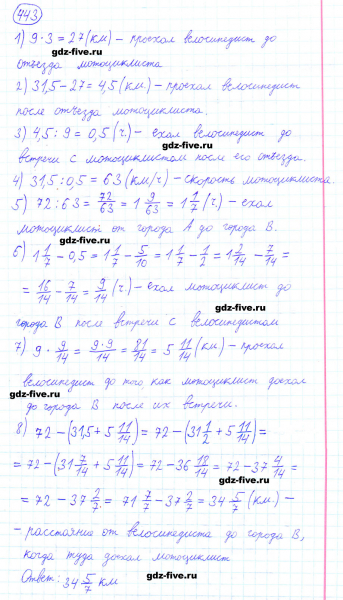 443
1) 9·3=27(км) – проехал велосипедист до
gdz-five.ru
отъезда мотоциклиста
2) 31,5-27=4,5(км) – проехал велосипедист
gdz-five.ru
после отъезда мотоциклиста
3) 4,5:9=0,5(ч.) – ехал велосипедист до
gdz-five.ru
встречи с мотоциклистом после его отъезда.
4) 31,5:0,5=63(км/ч) – скорость мотоциклиста.
gdz-five.ru
5) 72:63=72/63=1 9/63=1 1/7(ч.) – ехал
мотоциклист от города А до города В.
gdz-five.ru
6) 1 1/7-0,5=1 1/7-5/10=1 1/7-1/2=1 2/14-7/14=
gdz-five.ru
=16/14-7/14=9/14(ч.) – ехал мотоциклист до
города В после встречи с велосипедистом
gdz-five.ru
7) 9·9/14=9·9/14=81/14=5 11/14(км) – проехал
gdz-five.ru
велосипедист до того как мотоциклист доехал
до города В после их встречи.
gdz-five.ru
8) 72-(31,5+5 11/14)=72-(31 1/2+5 11/14)=
=72-(31 7/14+5 11/14)=72-36 18/14=72-37 4/14=
gdz-five.ru
=72-37 2/7=71 7/7-37 2/7=34 5/7(км) –
gdz-five.ru
- расстояние от велосипедиста до города В,
когда туда доехал мотоциклист
gdz-five.ru
Ответ: 34 5/7 км